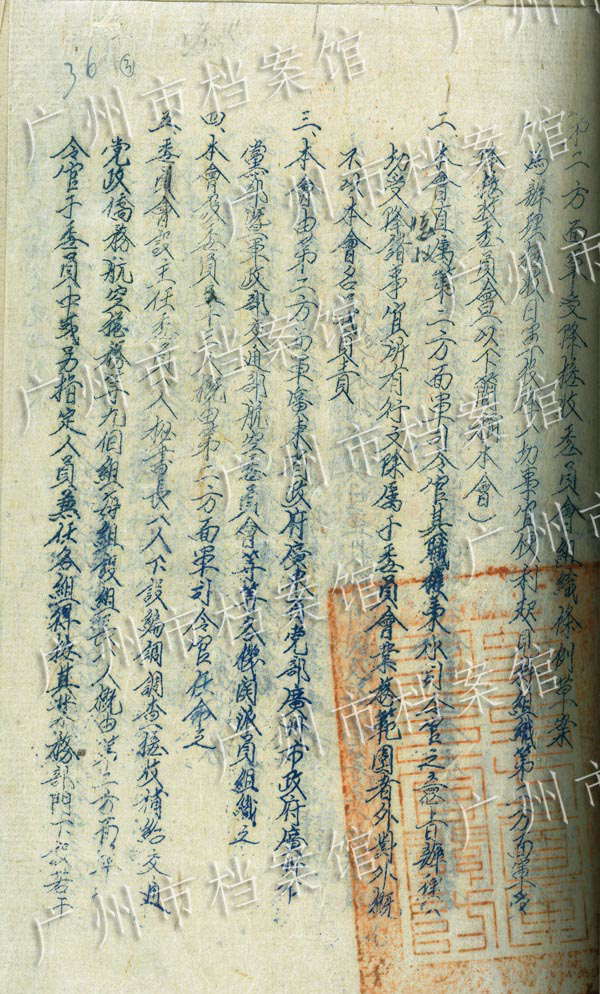 第二方面軍受降接收委員會組織條例草案
為辦理接收日軍投降一切事宜便利起見特組織第二方面軍受
降接收委員會(以下簡稱本會)
二、本會直屬第二方面軍司令官其職權秉承司令官之意旨辦理一
切受降接收事宜所有行文除屬于委員會業務範圍者外對外概
不以本會名義
三、本會由第二方面軍廣東省政府廣東省党部廣州市政府廣州市
黨部暨軍政部交通部航空委員會等各機關派員組織之
四、本會設委員 人概由第二方面軍司令官任命之
五、委員會設主任委員 人秘書長一人下設編調調查接收補給交通
党政僑務航空 務等九個組每組設組長一人概由第二方面軍司
令官于委員中或另指定人員兼任各組得按其業務部門下設若干
36
广州市档案馆